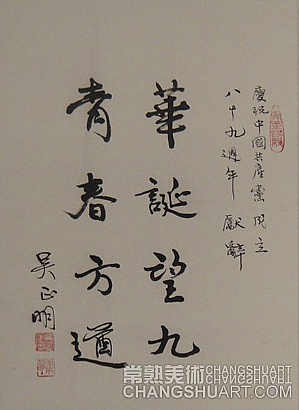 慶祝中國共產黨成立
八十九週年獻辭
華誕望九
青春方遒
吳正明
常熟美術 CHANGSHUART
CHANGSHUART.COM